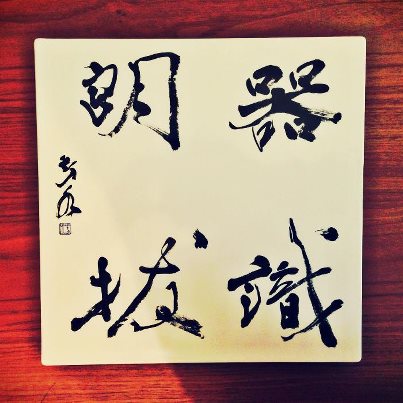 器識
朗拔